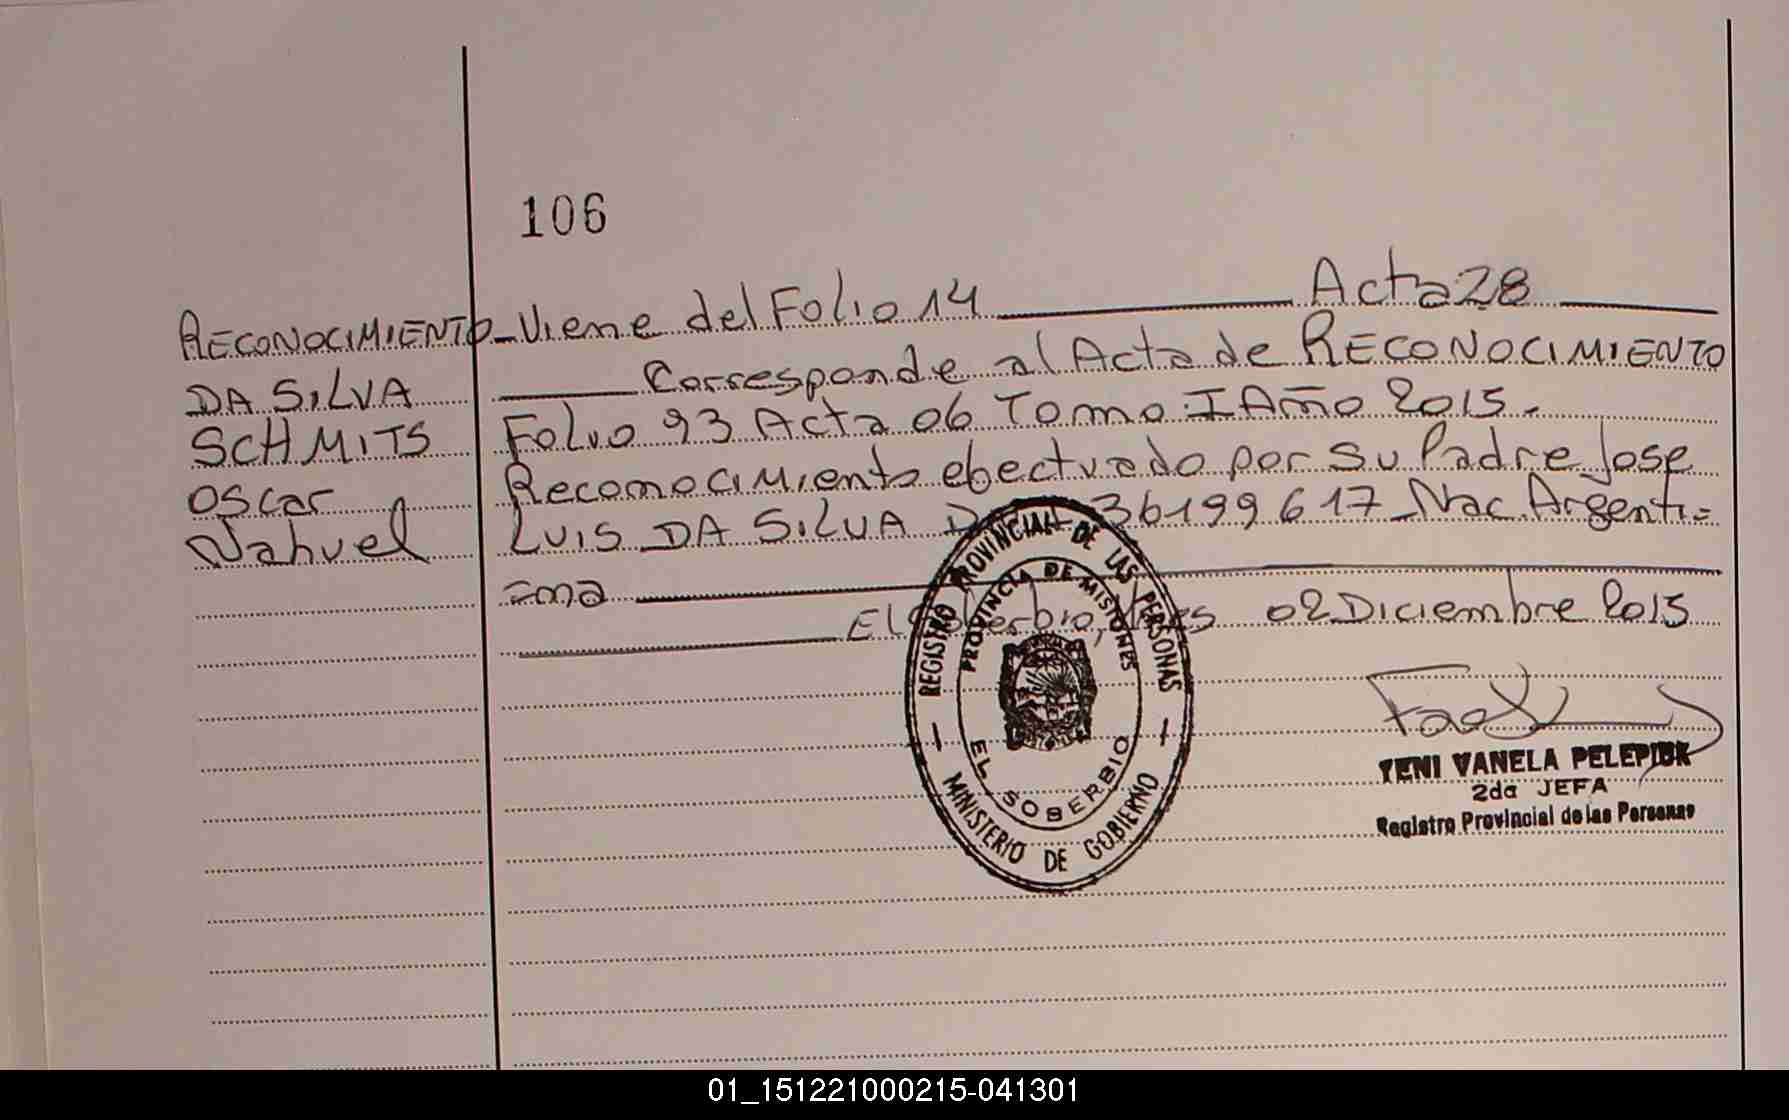 106
RECONOCIMIENTO - Viene del Folio 14 Acta 28
DA SILVA Corresponde al Acta de RECONOCIMIENTO
SCHMITS Folio 93 Acta 06 Tomo I Año 2015.
OSCAR Reconocimiento efectuado por su Padre Jose
Nahuel LUIS DA SILVA 36199617 Nac. Argenti=
=na
El Soberbio, 02 Diciembre 2015
REGISTRO PROVINCIAL DE LAS PERSONAS
PROVINCIA DE MISIONES
EL SOBERBIO
MINISTERIO DE GOBIERNO
YENI VANELA
2da JEFA
Registro Provincial de las Personas
01_151221000215-041301